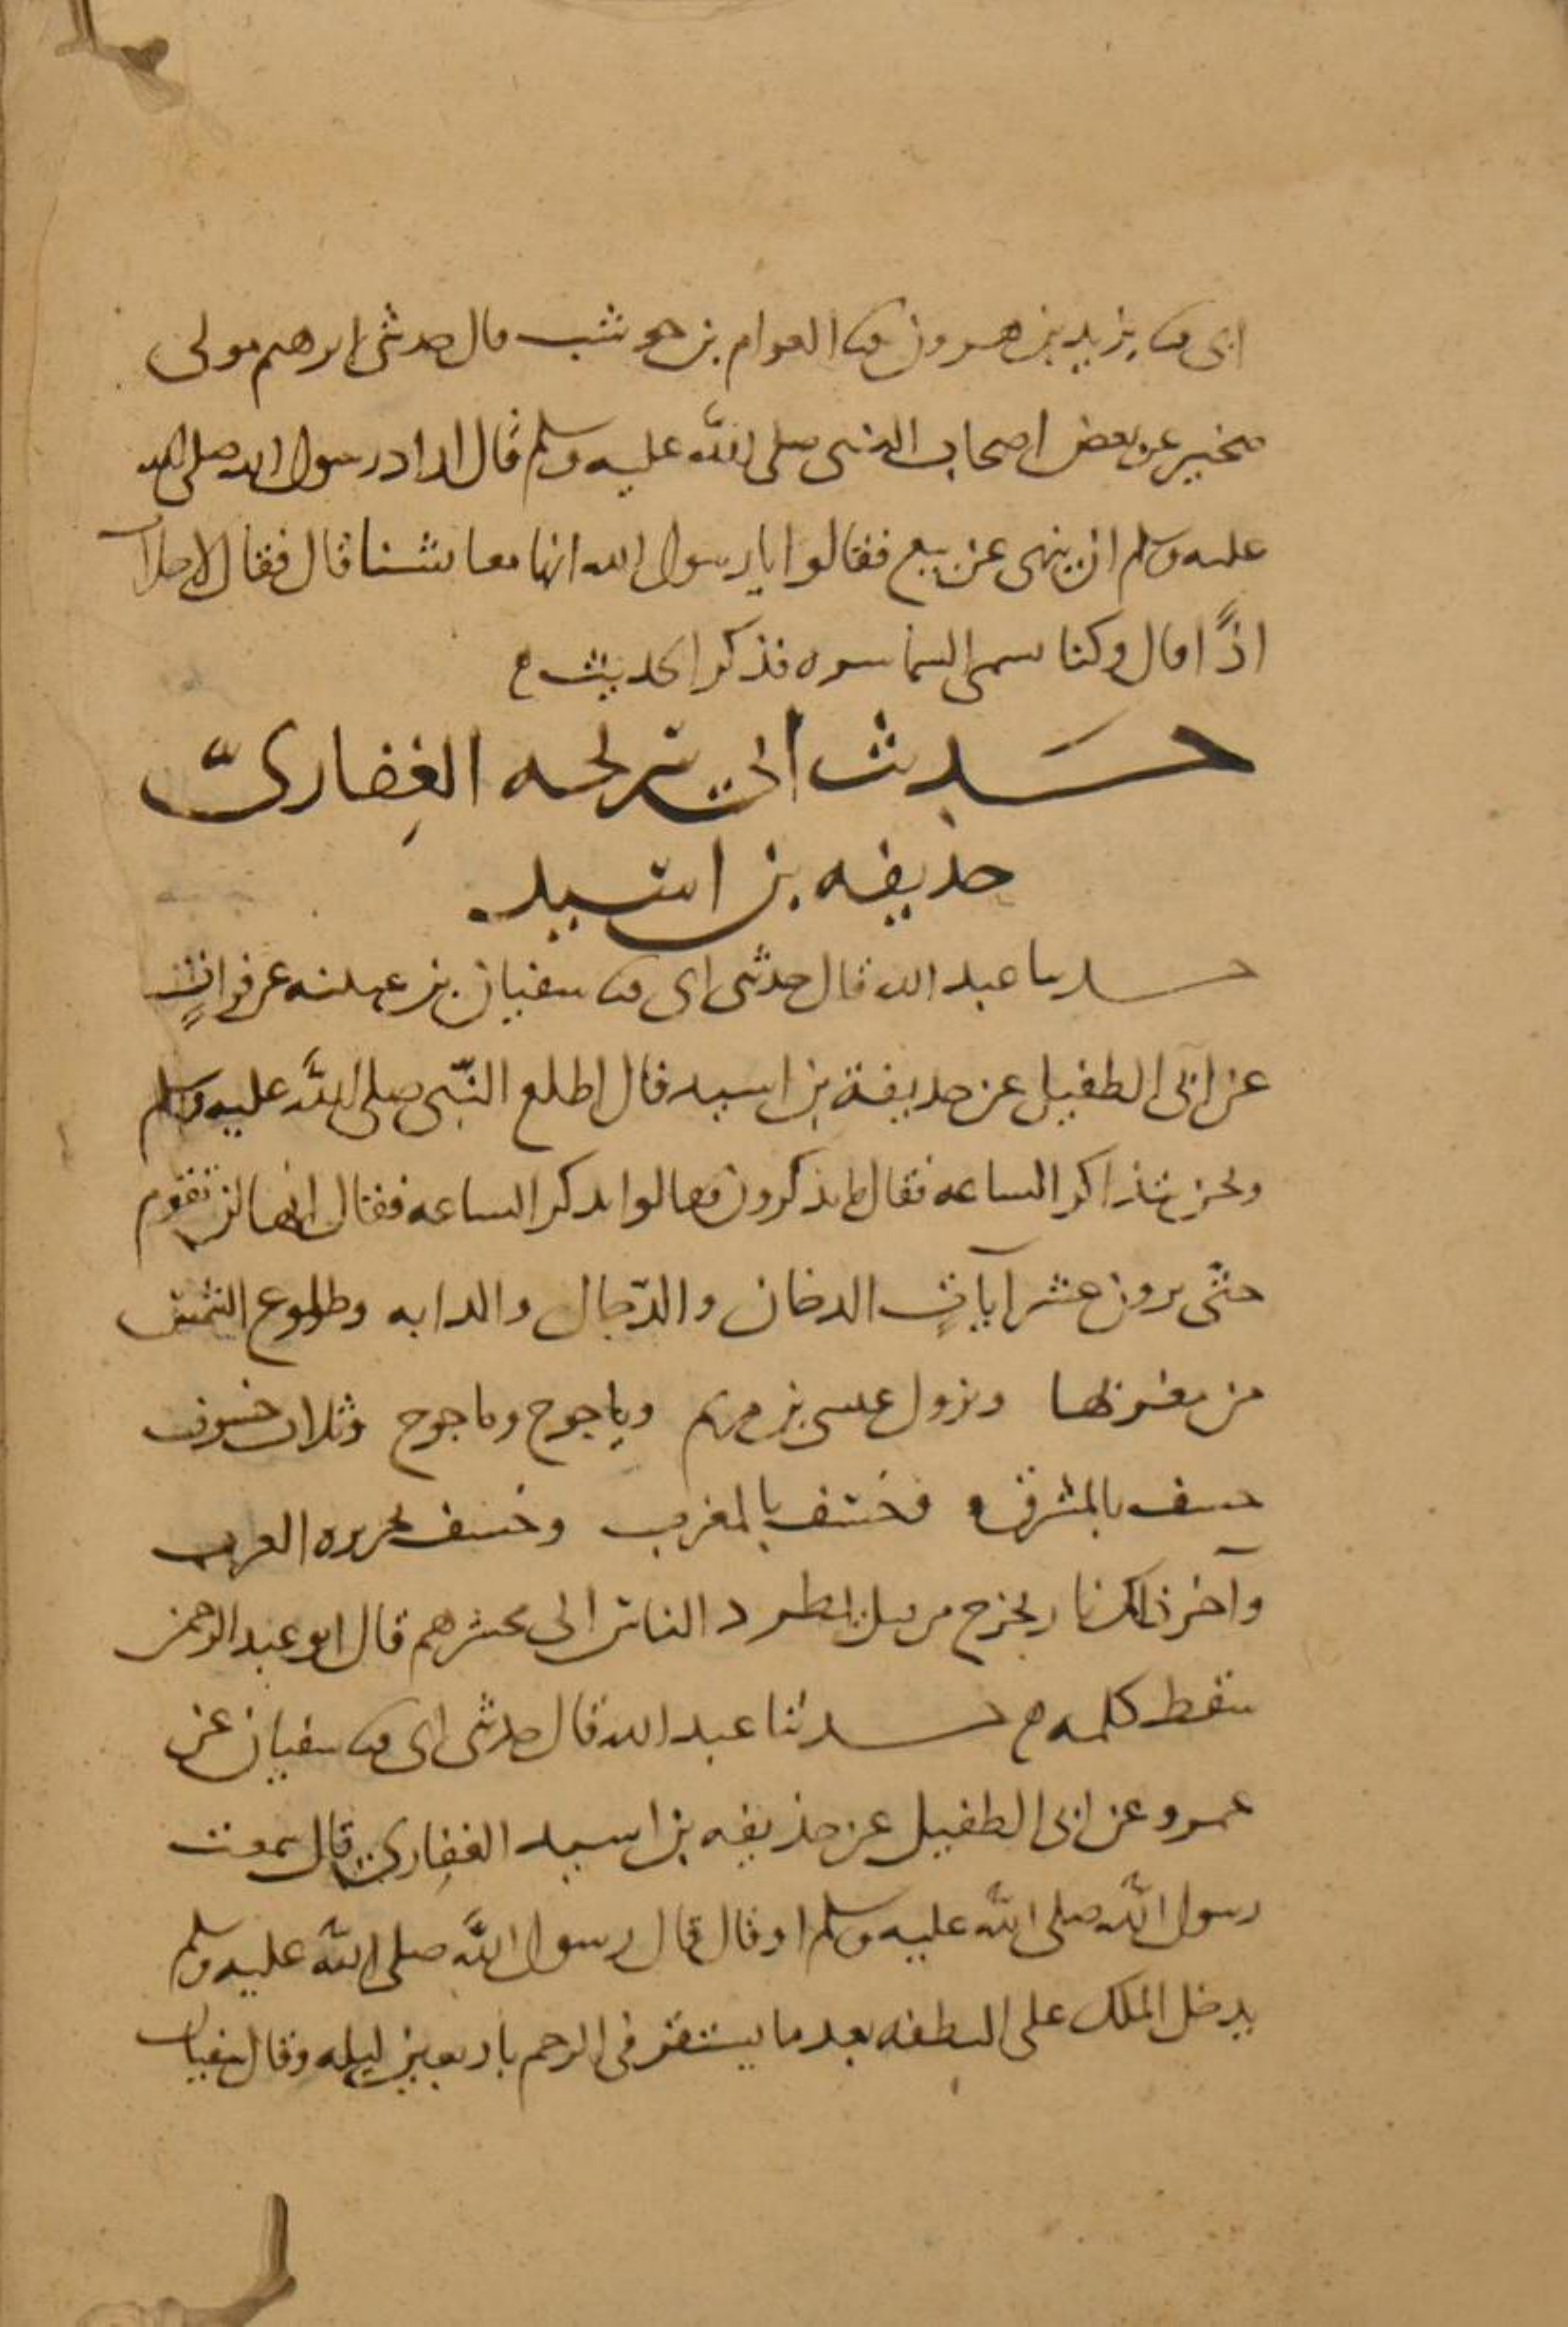 ابى ثنا يزيد بن هرون ثنا العوام بن حوشب قال حدثنى ابرهيم مولى
صخير عن بعض اصحاب النبى صلى الله عليه وسلم قال اراد رسول الله صلى الله
عليه وسلم ان ينهى عن بيع فقالوا يا رسول الله انها معايشنا قال فقال لا خلاب
اذًا قال وكنا نسمى السماسره فذكر الحديث
حَديث ابى سريحه الغِفارىّ
حذيفه بن اسيد
حدثنا عبد الله قال حدثنى ابى ثنا سفيان بن عيينه عن فراتٍ
عن ابى الطفيل عن حذيفة بن اسيد قال اطلع النّبى صلى اللَّه عليه وسلم
ونحن نتذاكر الساعه فقال ما تذكرون فقالوا نذكر الساعه فقال انها لن تقوم
حتّى يرون عشر آياتٍ الدخان والدّجال والدابه وطلوع الشمس
من مغربها ونزول عيسى بن مريم وياجوج وماجوج وثلاث خسوف
خسف بالمشرق وخسف بالمغرب وخسف بجزيره العرب
وآخر ذلك نار تخرج من قبل تطرد الناس الى محشرهم قال ابو عبد الرحمن
سقط كلمه حدثنا عبد الله قال حدثنى ابى ثنا سفيان عن
عمرو عن ابى الطفيل عن حذيفه بن اسيد الغفِارى قال سمعت
رسول اللَّه صلى اللَّه عليه وسلم او قال قال رسول اللَّه صلى اللَّه عليه وسلم
يدخل الملك على النطفه بعد ما يستقر فى الرحم باربعين ليله وقال سفيان